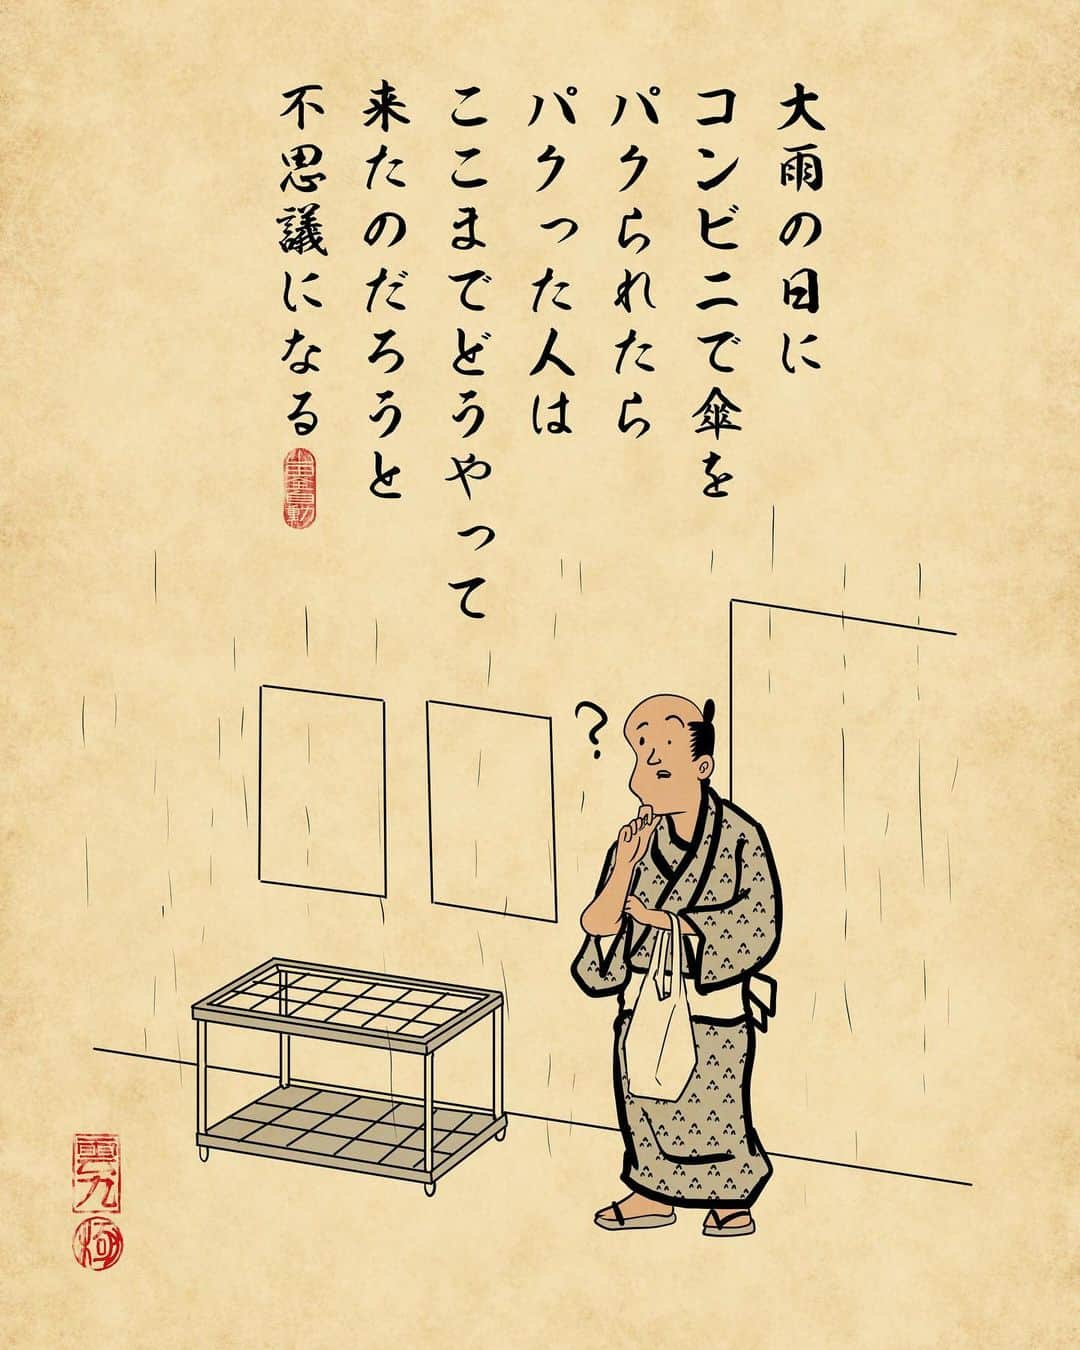 大雨の日に
コンビニで傘を
パクられたら
パクった人は
ここまでどうやって
来たのだろうと
不思議になる
?